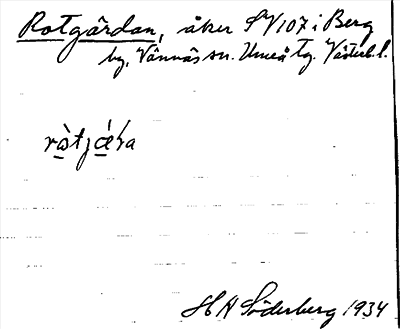 Rotgärdan, åker SV107 i Berg
by, Vännäs sn. Umeå tg. Västerb. l.
ràtjǽra
H A Söderberg 1934